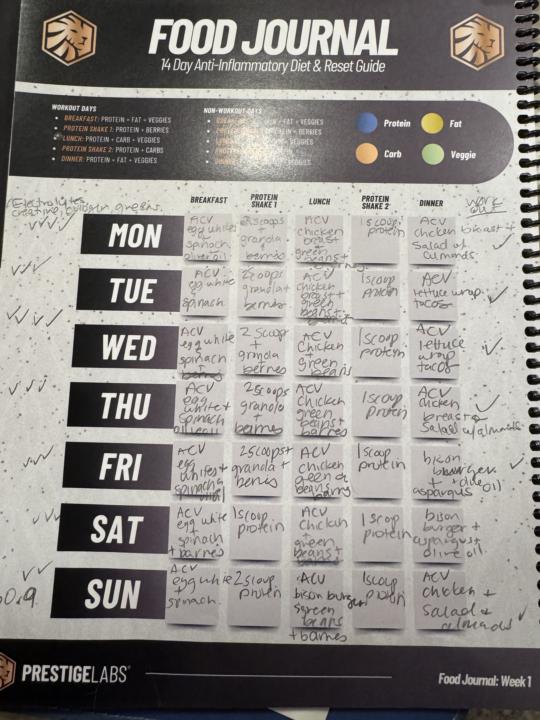 FOOD JOURNAL
14 Day Anti-Inflammatory Diet & Reset Guide
WORKOUT DAYS
• BREAKFAST: PROTEIN + FAT + VEGGIES
• PROTEIN SHAKE 1: PROTEIN + BERRIES
• LUNCH: PROTEIN + CARB + VEGGIES
• PROTEIN SHAKE 2: PROTEIN + CARBS
• DINNER: PROTEIN + FAT + VEGGIES
NON-WORKOUT DAYS
+ FAT + VEGGIES
+ BERRIES
+ VEGGIES
Protein
Fat
Carb
Veggie
Electrolytes
creatine, greens
BREAKFAST
PROTEIN
SHAKE 1
LUNCH
PROTEIN
SHAKE 2
DINNER
work
out
MON
ACV
egg whites
spinach
olive oil
2 scoops
+
granola
+
berries
ACV
chicken
breast
green
beans +
1 scoop
protein
ACV
chicken breast +
Salad w/
almonds
TUE
ACV
egg white
+
spinach
2 scoops
+
granola +
berries
ACV
chicken
breast +
green
beans +
1 scoop
protein
ACV
lettuce wrap
tacos
WED
ACV
egg white
+
spinach
+
2 scoop
+
granola
berries
ACV
chicken
+ green
beans
1 scoop
protein
ACV
lettuce
wrap
tacos
THU
ACV
egg
white +
spinach
2 scoops
granola
+
berries
ACV
chicken
green
beans +
1 scoop
protein
ACV
chicken
breast +
Salad w/almonds
FRI
ACV
egg
whites +
spinach
2 scoops +
granola +
berries
ACV
chicken
green
beans
1 scoop
protein
bison
burger
+ olive oil
SAT
ACV
egg white
+
spinach
1 scoop
protein
ACV
chicken
+
green
beans +
1 scoop
protein
bison
burger +
olive oil
SUN
ACV
egg white
+
spinach
2 scoop
protein
ACV
bison burger
green
beans
1 scoop
protein
ACV
chicken +
salad +
almonds
PRESTIGE LABS®
Food Journal: Week 1